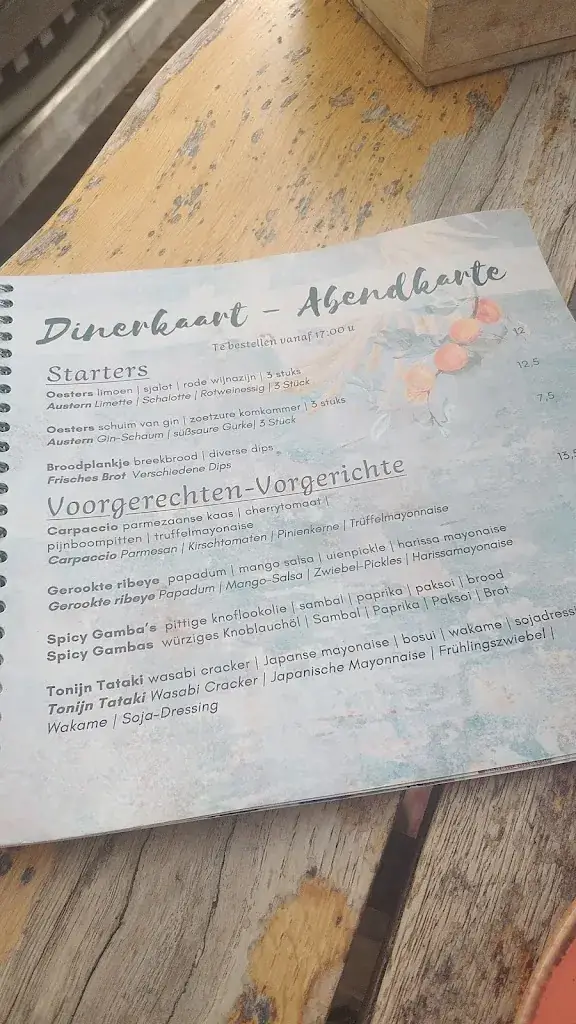 Dinerkaart - Abendkarte
Te bestellen vanaf 17:00 u
Starters
Oesters limoen | sjalot | rode wijnazijn | 3 stuks 12
Austern Limette / Schalotte / Rotweinessig | 3 Stück
Oesters schuim van gin | zoetzure komkommer | 3 stuks 12,5
Austern Gin-Schaum | süßsaure Gurke| 3 Stück
Broodplankje breekbrood | diverse dips 7,5
Frisches Brot Verschiedene Dips
Voorgerechten-Vorgerichte
Carpaccio parmezaanse kaas | cherrytomaat | 13,5
pijnboompitten | truffelmayonaise
Carpaccio Parmesan | Kirschtomaten / Pinienkerne | Trüffelmayonnaise
Gerookte ribeye papadum | mango salsa | uienpickle | harissa mayonaise
Gerookte ribeye Papadum | Mango-Salsa | Zwiebel-Pickles | Harissamayonaise
Spicy Gamba's pittige knoflookolie | sambal | paprika | paksoi | brood
Spicy Gambas würziges Knoblauchöl | Sambal | Paprika | Paksoi | Brot
Tonijn Tataki wasabi cracker | Japanse mayonaise | bosui | wakame | sojadress
Tonijn Tataki Wasabi Cracker | Japanische Mayonnaise | Frühlingszwiebel |
Wakame | Soja-Dressing